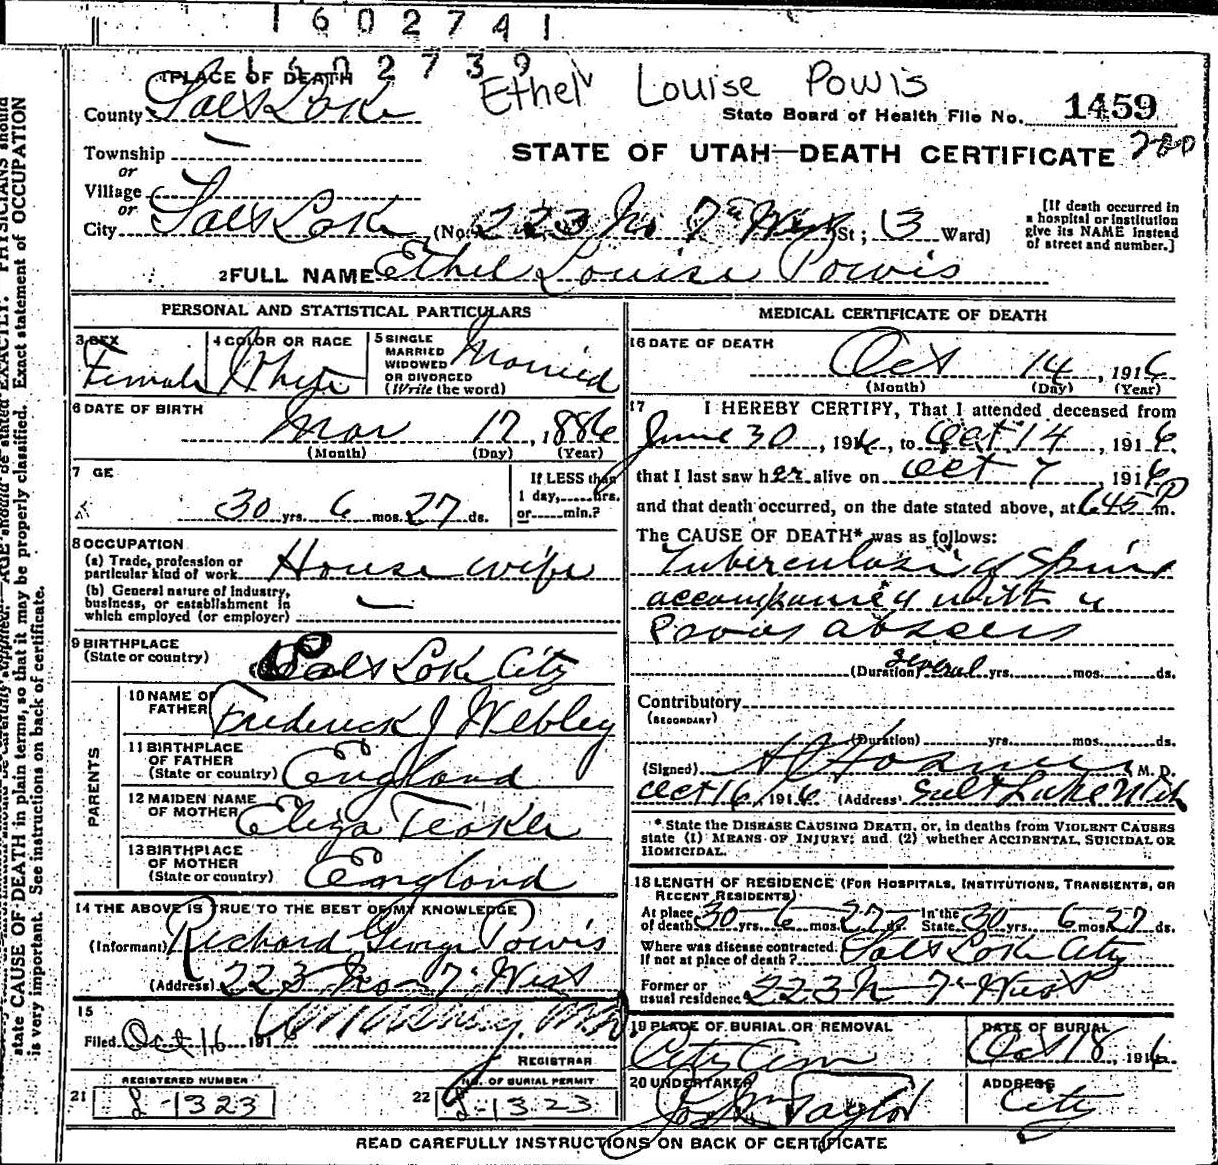 1602741
1602739
Ethel Louise Powis
1 PLACE OF DEATH
County Salt Lake
State Board of Health File No. 1459
Township
or
STATE OF UTAH—DEATH CERTIFICATE
Village
or
City Salt Lake (No. 223 No 7th West St; 13 Ward)
[If death occurred in a hospital or institution give its NAME instead of street and number.]
2 FULL NAME Ethel Louise Powis
PERSONAL AND STATISTICAL PARTICULARS
3 SEX Female
4 COLOR OR RACE White
5 SINGLE MARRIED WIDOWED OR DIVORCED (Write the word) Married
6 DATE OF BIRTH
Mar 17, 1886
(Month) (Day) (Year)
7 GE
30 yrs. 6 mos. 27 ds.
If LESS than 1 day, hrs. or min.?
8 OCCUPATION
(a) Trade, profession or particular kind of work House wife
(b) General nature of industry, business, or establishment in which employed (or employer) —
9 BIRTHPLACE
(State or country) Salt Lake City
PARENTS
10 NAME OF FATHER Frederick J Webley
11 BIRTHPLACE OF FATHER (State or country) England
12 MAIDEN NAME OF MOTHER Eliza Teaker
13 BIRTHPLACE OF MOTHER (State or country) England
14 THE ABOVE IS TRUE TO THE BEST OF MY KNOWLEDGE
(Informant) Richard George Powis
(Address) 223 No 7th West
15
Filed Oct 16 191
REGISTRAR
21 REGISTERED NUMBER L-1323
22 NO. OF BURIAL PERMIT L-1323
MEDICAL CERTIFICATE OF DEATH
16 DATE OF DEATH
Oct 14, 1916
(Month) (Day) (Year)
17 I HEREBY CERTIFY, That I attended deceased from
June 30, 1916, to Oct 14, 1916,
that I last saw her alive on Oct 7 1916
and that death occurred, on the date stated above, at 645 P m.
The CAUSE OF DEATH* was as follows:
Tuberculosis of Spine
accompanied with a
Psoas abscess
(Duration) several yrs. mos. ds.
Contributory
(SECONDARY)
(Duration) yrs. mos. ds.
(Signed) M. D.
Oct 16, 1916 (Address) Salt Lake Utah
* State the DISEASE CAUSING DEATH, or, in deaths from VIOLENT CAUSES state (1) MEANS OF INJURY; and (2) whether ACCIDENTAL, SUICIDAL OR HOMICIDAL.
18 LENGTH OF RESIDENCE (FOR HOSPITALS, INSTITUTIONS, TRANSIENTS, OR RECENT RESIDENTS)
At place of death 30 yrs. 6 mos. 27 ds. In the State 30 yrs. 6 mos. 27 ds.
Where was disease contracted. If not at place of death? Salt Lake City
Former or usual residence 223 N 7th West
19 PLACE OF BURIAL OR REMOVAL City Cem
DATE OF BURIAL Oct 18, 1916
20 UNDERTAKER Jos Wm Taylor
ADDRESS City
READ CAREFULLY INSTRUCTIONS ON BACK OF CERTIFICATE
PHYSICIANS should
state CAUSE OF DEATH in plain terms, so that it may be properly classified. Exact statement of OCCUPATION
is very important. See instructions on back of certificate.